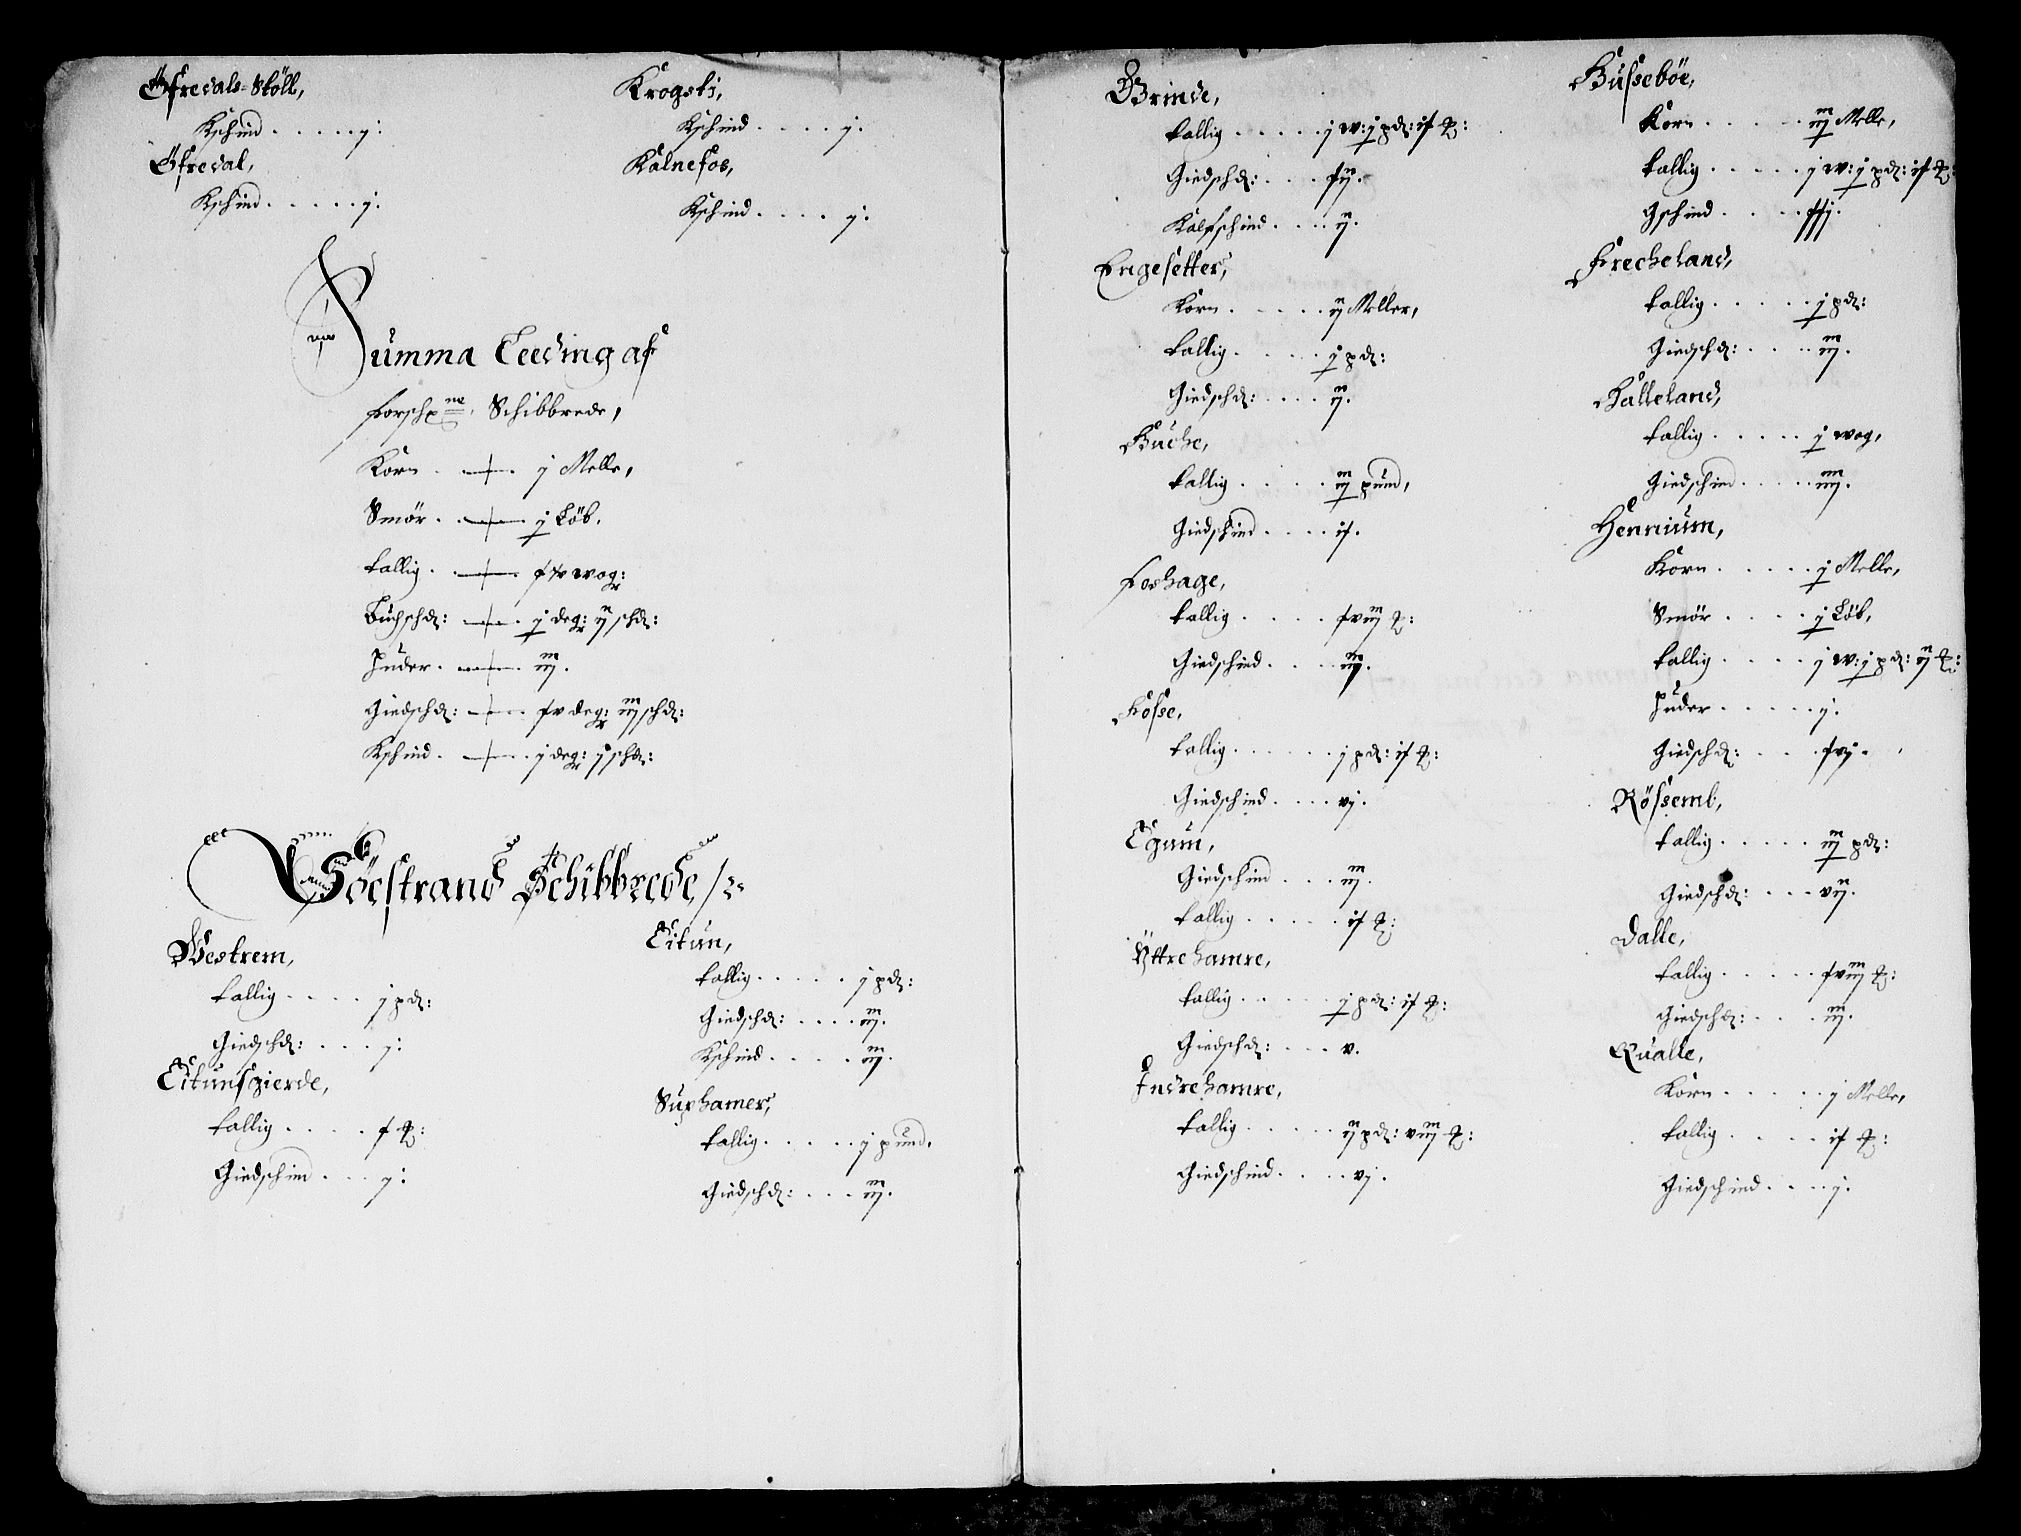 Öfredals-Stöll,
Kschind . . . . . j:
Öfredal,
Kschind . . . . . j:
Krogeli,
Kschind . . . . j.
Kalnefos,
Kschind . . . . j:
Summa Leeding af
forschne: Schibbrede,
Korn . j Melle,
Smör . j Löb.
tallig . wog:
Buchschd: . j deg: ij schd:
Huder . iij.
Giedschd: . deg: iij schd:
Kschind . j deg: j schd:
Söestrand Schibbrede
Westrem,
tallig . . . . j pd:
Giedschd: . . . j:
Eitunsgierde,
tallig . . . . .
Giedschind . . . j:
Eitun,
tallig . . . . . j pd:
Giedschd: . . . . iij.
Kschind . . . . iij.
Suphamer,
tallig . . . . . j pund.
Giedschd: . . . iij.
Grinde,
tallig . . . . . j w: j pd:
Giedschd: . . .
Kalfschind . . . . ij.
Engesetter,
Korn . . . . . ij Meller,
tallig . . . . . j pd:
Giedschd: . . . . ij.
Buche,
tallig . . . . . iij pund,
Giedschind . . . .
Foshage,
tallig . . . .
Giedschind . . . . iij.
Fosse,
tallig . . . . . . j pd:
Giedschind . . . . vj.
Egum,
Giedschind . . . iij.
tallig . . . . .
Yttrehamre,
tallig . . . . . j pd:
Giedschd: . . . v.
Indrehamre,
tallig . . . . . ij pd: viij
Giedschind . . . . vj.
Busseböe,
Korn . . . . . iij Melle,
tallig . . . . . j w: j pd:
Gschind . . . .
Frecheland,
tallig . . . . . j pd:
Giedschd: . . . . iij.
Halleland,
tallig . . . . . j wog,
Giedschind . . . . . iiij.
Hennium,
Korn . . . . . j Melle,
Smör . . . . j Löb,
tallig . . . . j w: j pd: ij
Huder . . . . . j:
Giedschd: . . .
Rössemb,
tallig . . . . . iij pd:
Giedschd: . . . vij.
Dalle,
tallig . . . . .
Giedschd: . . . . iij.
Qualle,
Korn . . . . . j Melle,
tallig . . . . .
Giedschind . . . . j.